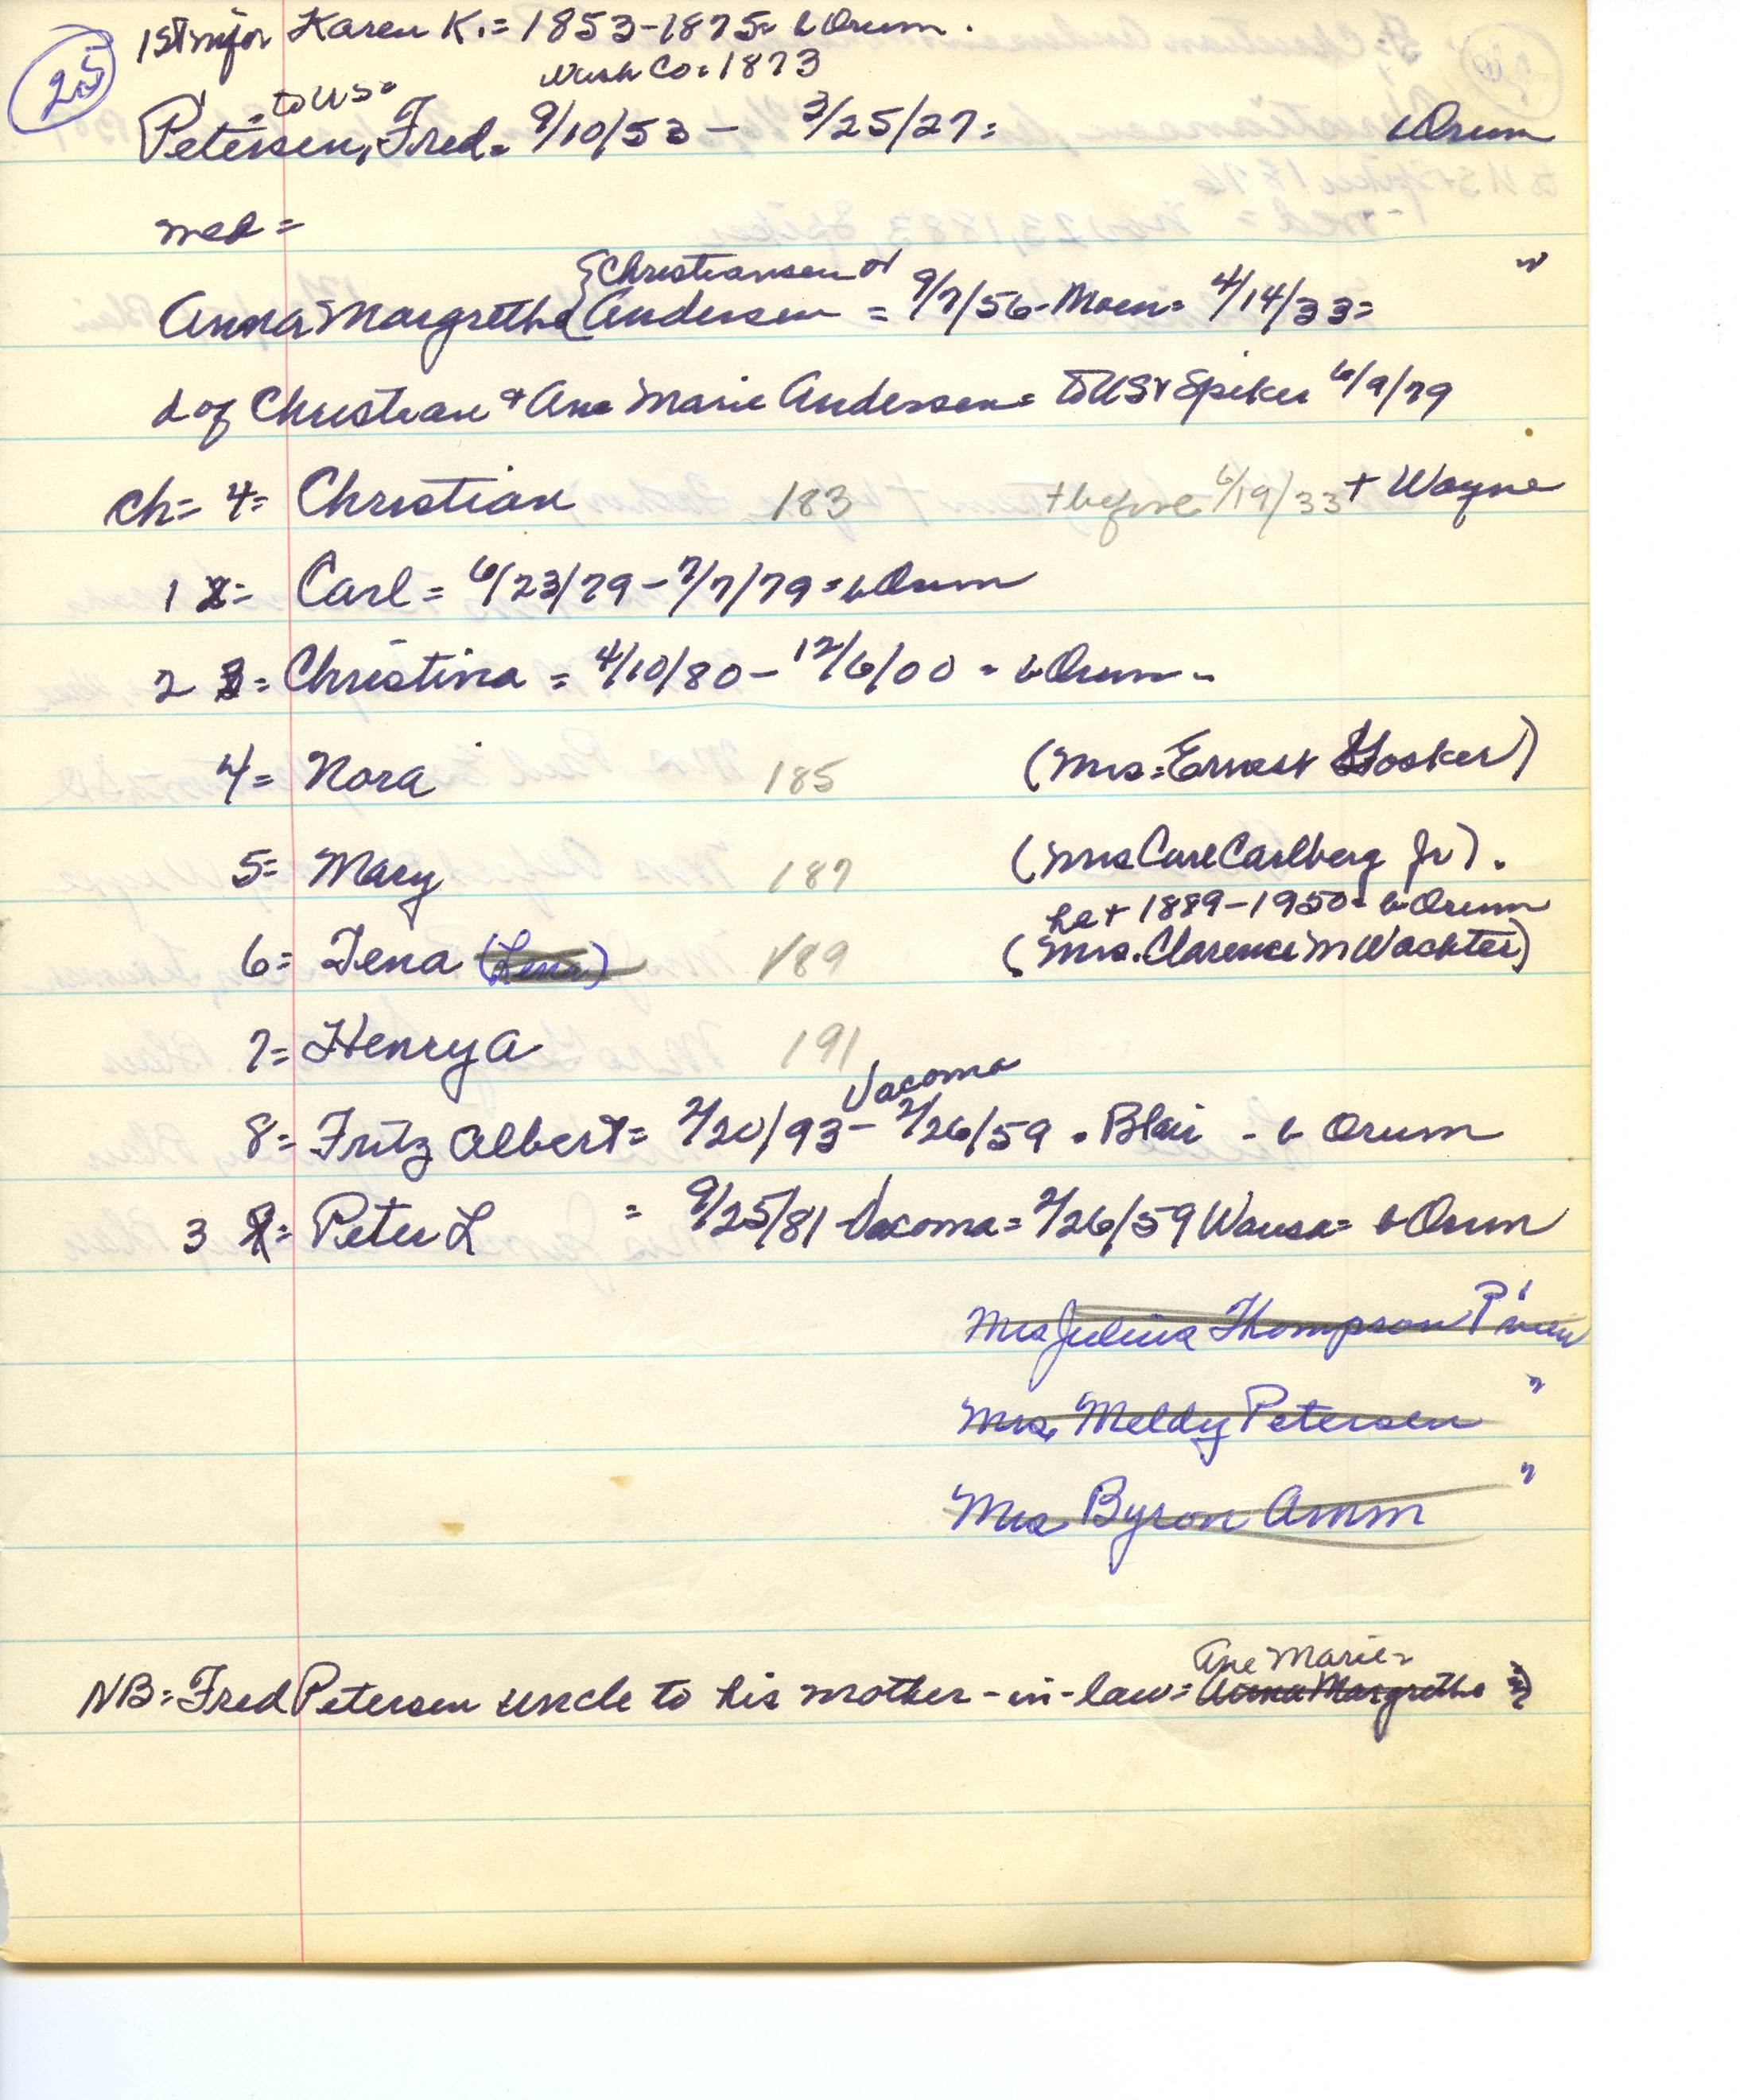 25
1st Karen K. = 1853-1875= b Orum.
to US= Wash Co. 1873
Petersen, Fred= 9/10/53 - 3/25/27= b Orum
med =
{Christiansen or
Anna Margrethe {Andersen = 9/7/56-Moen= 4/14/33= "
d of Christian & Ane Marie Andersen= to US & Spiker 6/9/79
Ch= 4= Christian 183 + before 6/19/33 + Wayne
1 2= Carl = 6/23/79-7/7/79= b Orum
2 3= Christina = 4/10/80 - 12/6/00 = b Orum-
4= Nora 185 (Mrs=Ernest Hosker)
5= Mary 187 (Mrs Carl Carlberg Jr).
he + 1889-1950= b Orum
6= Tena (Lena) 189 (Mrs. Clarence M Wachter)
7= Henry A 191
Vacoma
8= Fritz Albert= 2/20/93- 2/26/59 . Blair - b Orum
3 = Peter L = 9/25/81-Vacoma= 2/26/59 Wausa= b Orum
Mrs Julius Thompson
Mrs. Meldy Petersen "
Mrs Byron Amm "
Ane Marie=
NB= Fred Petersen uncle to his mother-in-law= Anna Margrethe